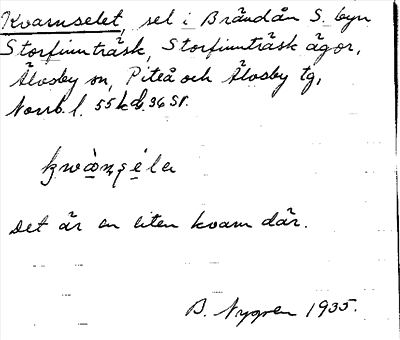 Kvarnselet, sel i Brändån S. byn
Storfinnträsk, Storfinnträsk ägor,
Älvsby sn, Piteå och Älvsby tg,
Norrb. l. 55 k d. 36 St.
Det är en liten kvarn där.
B. Nygren 1935.